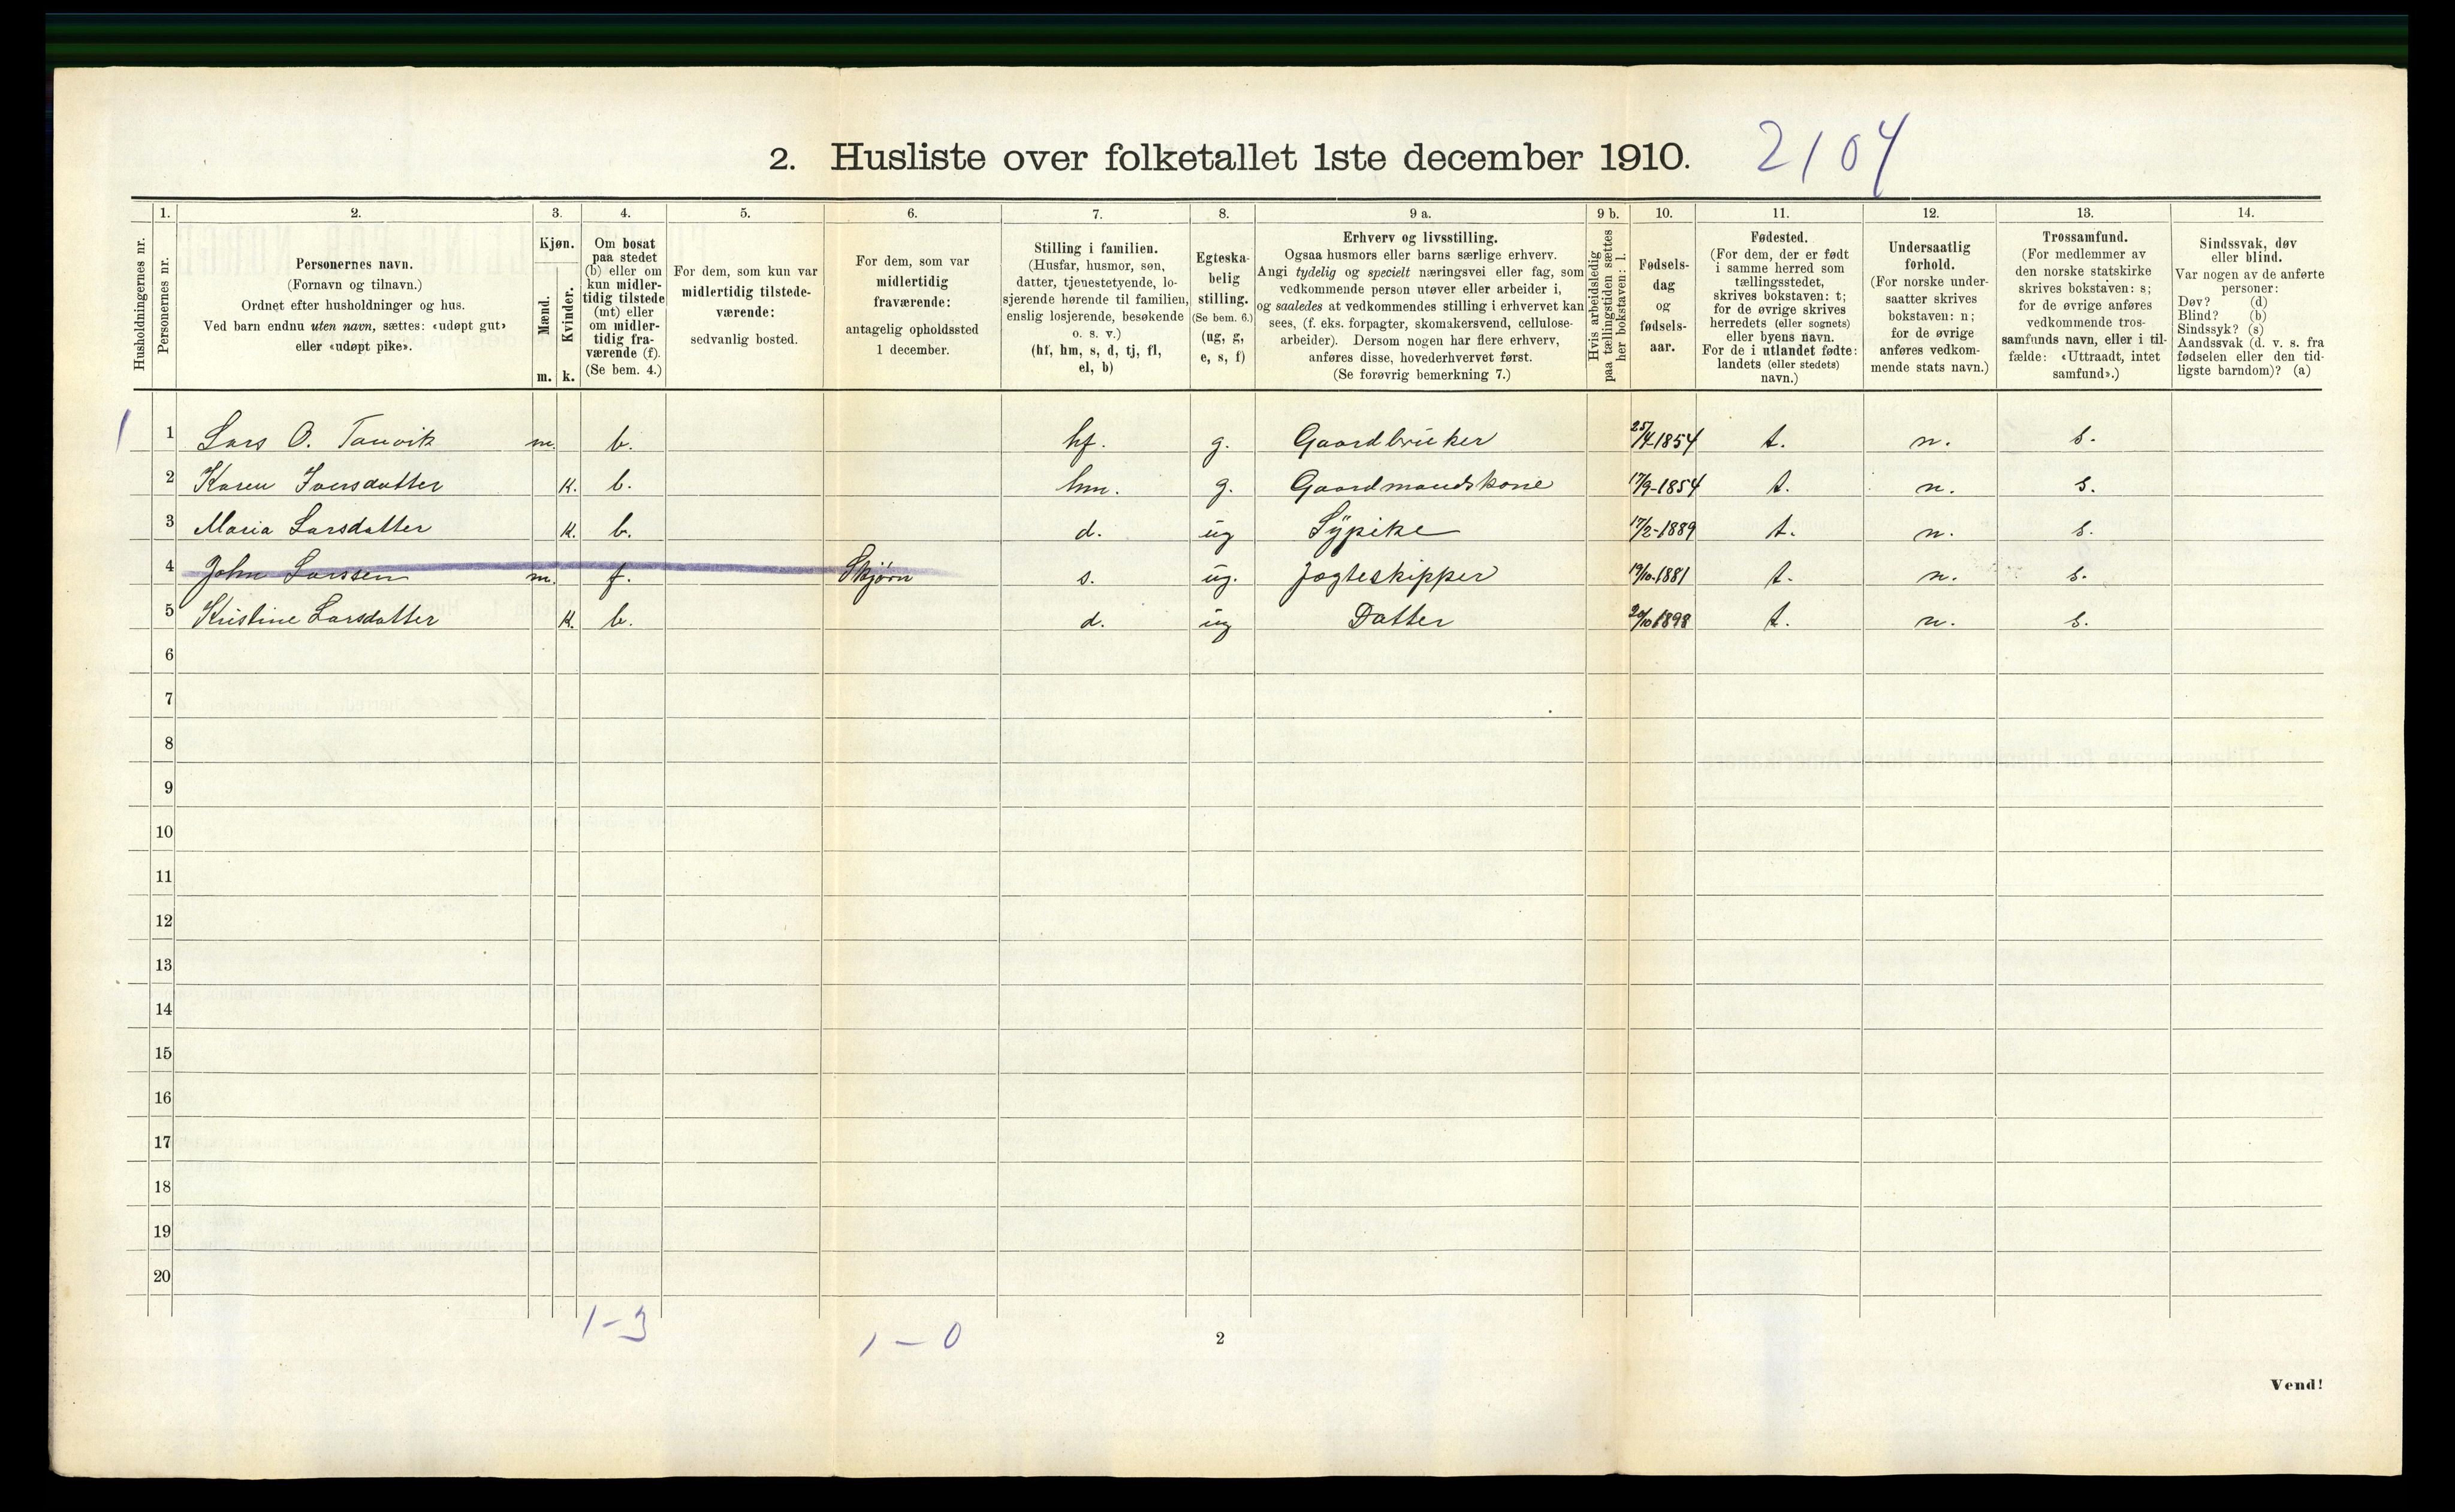 2. Husliste over folketallet 1ste december 1910. 2104
1. 2. 3. 4. 5. 6. 7. 8. 9 a. 9 b. 10. 11. 12. 13. 14.
Husholdningernes nr.
Personernes nr.
Personernes navn.
(Fornavn og tilnavn.)
Ordnet efter husholdninger og hus.
Ved barn endnu uten navn, sættes: «udøpt gut»
eller «udøpt pike».
Kjøn.
Mænd.
Kvinder.
m. k.
Om bosat
paa stedet
(b) eller om
kun midler-
tidig tilstede
(mt) eller
om midler-
tidig fra-
værende (f).
(Se bem. 4.)
For dem, som kun var
midlertidig tilstede-
værende:
sedvanlig bosted.
For dem, som var
midlertidig
fraværende:
antagelig opholdssted
1 december.
Stilling i familien.
(Husfar, husmor, søn,
datter, tjenestetyende, lo-
sjerende hørende til familien,
enslig losjerende, besøkende
o. s. v.)
(hf, hm, s, d, tj, fl,
el, b)
Egteska-
belig
stilling.
(Se bem. 6.)
(ug, g,
e, s, f)
Erhverv og livsstilling.
Ogsaa husmors eller barns særlige erhverv.
Angi tydelig og specielt næringsvei eller fag, som
vedkommende person utøver eller arbeider i,
og saaledes at vedkommendes stilling i erhvervet kan
sees, (f. eks. forpagter, skomakersvend, cellulose-
arbeider). Dersom nogen har flere erhverv,
anføres disse, hovederhvervet først.
(Se forøvrig bemerkning 7.)
Hvis arbeidsledig
paa tællingstiden sættes
her bokstaven: l.
Fødsels-
dag
og
fødsels-
aar.
Fødested.
(For dem, der er født
i samme herred som
tællingsstedet,
skrives bokstaven: t;
for de øvrige skrives
herredets (eller sognets)
eller byens navn.
For de i utlandet fødte:
landets (eller stedets)
navn.)
Undersaatlig
forhold.
(For norske under-
saatter skrives
bokstaven: n;
for de øvrige
anføres vedkom-
mende stats navn.)
Trossamfund.
(For medlemmer av
den norske statskirke
skrives bokstaven: s;
for de øvrige anføres
vedkommende tros-
samfunds navn, eller i til-
fælde: «Uttraadt, intet
samfund».)
Sindssvak, døv
eller blind.
Var nogen av de anførte
personer:
Døv? (d)
Blind? (b)
Sindssyk? (s)
Aandssvak (d. v. s. fra
fødselen eller den tid-
ligste barndom)? (a)
1 1 Lars O. Tanvik m. b. hf. g. Gaardbruker 25/4-1854 t. n. s.
2 Karen Iversdatter k. b. hm. g. Gaardmandskone 17/9-1854 t. n. s.
3 Maria Larsdatter k. b. d. ug Sypike 17/2-1889 t. n. s.
4 John Larssen m. f. Skjørn s. ug. Jægteskipper 19/10-1881 t. n. s.
5 Kristine Larsdatter k. b. d. ug Datter t. n. s.
6
7
8
9
10
11
12
13
14
15
16
17
18
19
20
1-3
1-0
2
Vend!